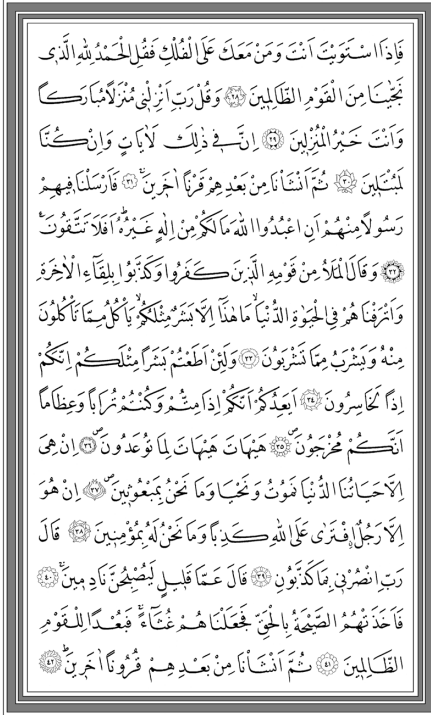 فَاِذَا اسْتَوَيْتَ اَنْتَ وَمَنْ مَعَكَ عَلَى الْفُلْكِ فَقُلِ الْحَمْدُ لِلّٰهِ الَّذ۪ى
نَجّٰينَا مِنَ الْقَوْمِ الظَّالِم۪ينَ ﴿٢٨﴾ وَقُلْ رَبِّ اَنْزِلْن۪ى مُنْزَلًا مُبَارَكًا
وَاَنْتَ خَيْرُ الْمُنْزِل۪ينَ ﴿٢٩﴾ اِنَّ ف۪ى ذٰلِكَ لَاٰيَاتٍ وَاِنْ كُنَّا
لَمُبْتَل۪ينَ ﴿٣٠﴾ ثُمَّ اَنْشَاْنَا مِنْ بَعْدِهِمْ قَرْنًا اٰخَر۪ينَۚ ﴿٣١﴾ فَاَرْسَلْنَا ف۪يهِمْ
رَسُولًا مِنْهُمْ اَنِ اعْبُدُوا اللّٰهَ مَا لَكُمْ مِنْ اِلٰهٍ غَيْرُهُۜ اَفَلَا تَتَّقُونَ۟
﴿٣٢﴾ وَقَالَ الْمَلَاُ مِنْ قَوْمِهِ الَّذ۪ينَ كَفَرُوا وَكَذَّبُوا بِلِقَٓاءِ الْاٰخِرَةِ
وَاَتْرَفْنَاهُمْ فِى الْحَيٰوةِ الدُّنْيَاۙ مَا هٰذَٓا اِلَّا بَشَرٌ مِثْلُكُمْۙ يَاْكُلُ مِمَّا تَاْكُلُونَ
مِنْهُ وَيَشْرَبُ مِمَّا تَشْرَبُونَ ﴿٣٣﴾ وَلَئِنْ اَطَعْتُمْ بَشَرًا مِثْلَكُمْ اِنَّكُمْ
اِذًا لَخَاسِرُونَ ﴿٣٤﴾ اَيَعِدُكُمْ اَنَّكُمْ اِذَا مِتُّمْ وَكُنْتُمْ تُرَابًا وَعِظَامًا
اَنَّكُمْ مُخْرَجُونَۖ ﴿٣٥﴾ هَيْهَاتَ هَيْهَاتَ لِمَا تُوعَدُونَۖ ﴿٣٦﴾ اِنْ هِىَ
اِلَّا حَيَاتُنَا الدُّنْيَا نَمُوتُ وَنَحْيَا وَمَا نَحْنُ بِمَبْعُوث۪ينَۖ ﴿٣٧﴾ اِنْ هُوَ
اِلَّا رَجُلٌۨ افْتَرٰى عَلَى اللّٰهِ كَذِبًا وَمَا نَحْنُ لَهُ بِمُؤْمِن۪ينَ ﴿٣٨﴾ قَالَ
رَبِّ انْصُرْن۪ى بِمَا كَذَّبُونِ ﴿٣٩﴾ قَالَ عَمَّا قَل۪يلٍ لَيُصْبِحُنَّ نَادِم۪ينَۚ ﴿٤٠﴾
فَاَخَذَتْهُمُ الصَّيْحَةُ بِالْحَقِّ فَجَعَلْنَاهُمْ غُثَٓاءًۚ فَبُعْدًا لِلْقَوْمِ
الظَّالِم۪ينَ ﴿٤١﴾ ثُمَّ اَنْشَاْنَا مِنْ بَعْدِهِمْ قُرُونًا اٰخَر۪ينَۜ ﴿٤٢﴾